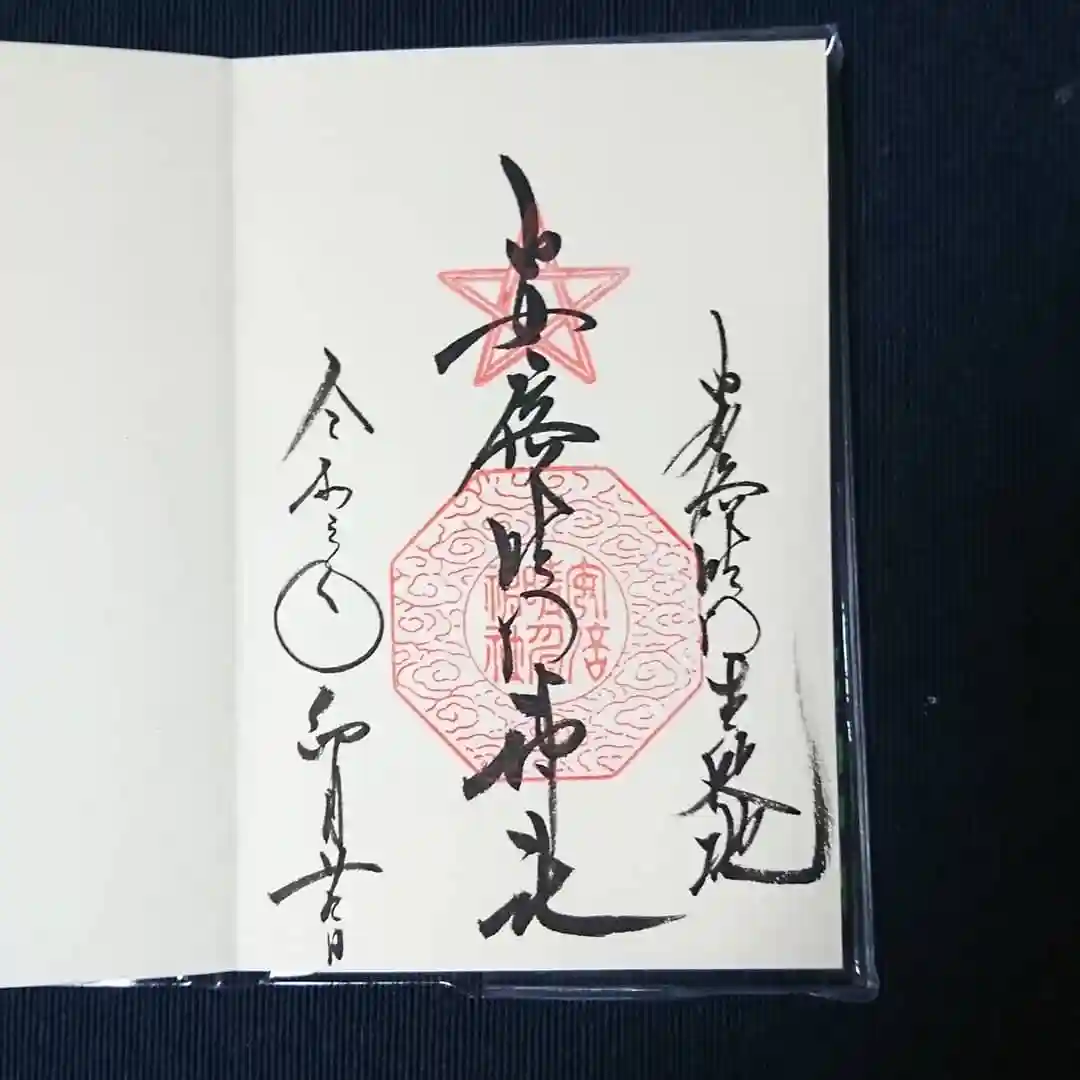 安倍晴明生誕地
安倍晴明神社
令和三年卯月廿九日
安倍
晴明
神社